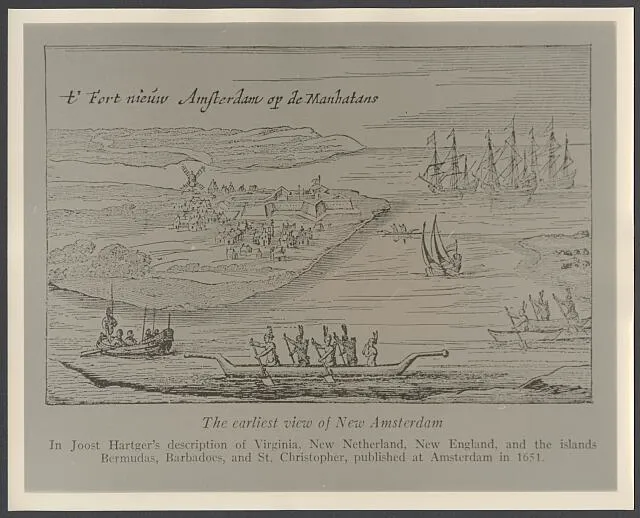 t' Fort nieuw Amsterdam op de Manhatans
The earliest view of New Amsterdam
In Joost Hartger's description of Virginia, New Netherland, New England, and the islands
Bermudas, Barbadoes, and St. Christopher, published at Amsterdam in 1651.